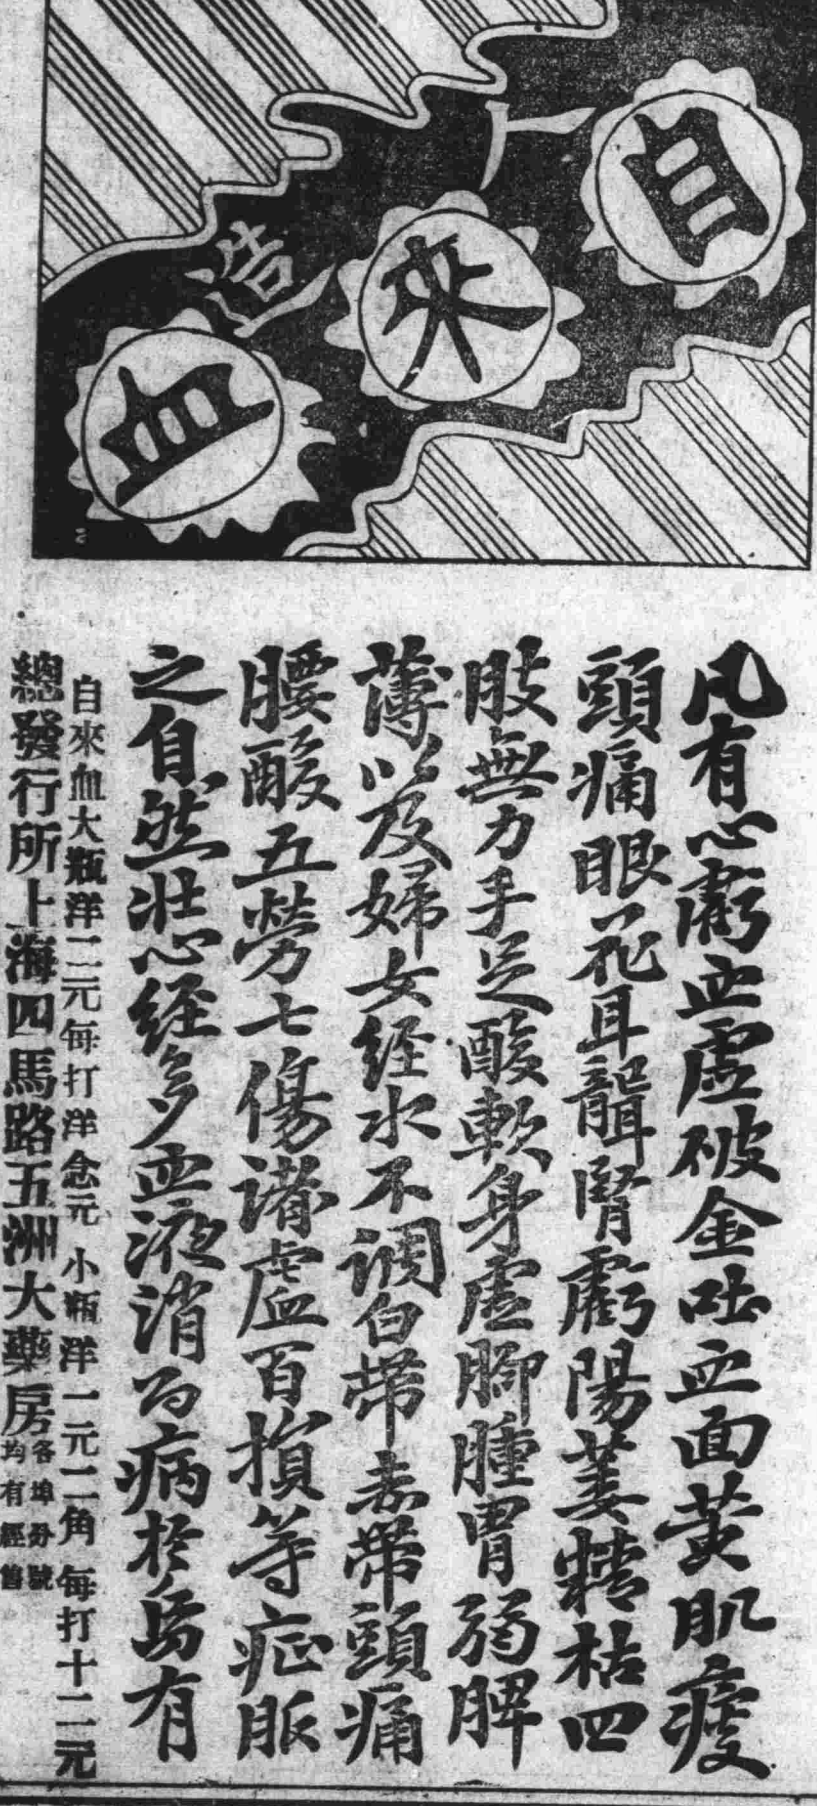 人造
自來血
凡有心虧血虛破金吐血面黃肌瘦
頭痛眼花耳聾腎虧陽萎精枯四
肢無力手足酸軟身虛腳腫胃弱脾
薄以及婦女經水不調白帶赤帶頭痛
腰酸五勞七傷諸虛百損等症服
之自然壯心經多血液消百病於烏有
自來血大瓶洋二元每打洋念元 小瓶洋一元二角 每打十二元
總發行所上海四馬路五洲大藥房
各埠分號
均有經售